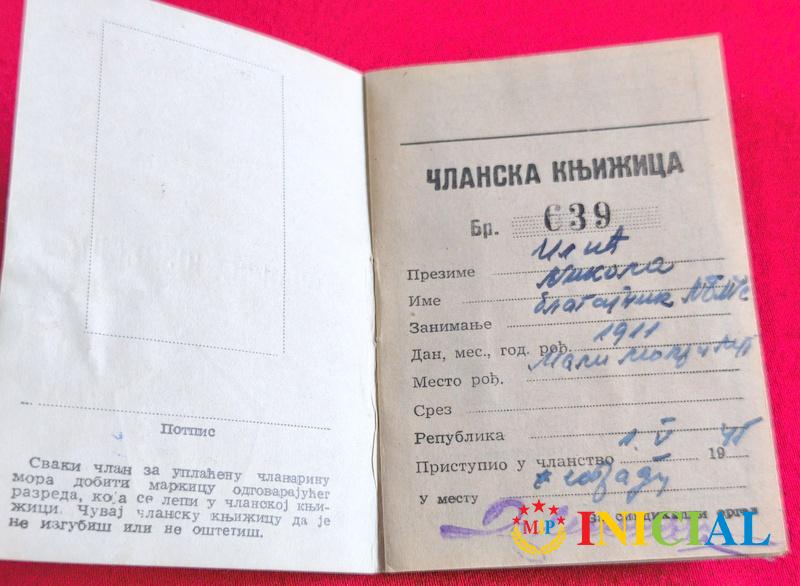 Потпис
Сваки члан за уплаћену чланарину
мора добити маркицу одговарајућег
разреда, која се лепи у чланској књи-
жици. Чувај чланску књижицу да је
не изгубиш или не оштетиш.
ЧЛАНСКА КЊИЖИЦА
Бр. 639
Презиме Илић
Име Никола
Занимање благајник
Дан, мес., год. рођ. 1911
Место рођ. Мали
Срез
Република
Приступио у чланство 1. V 1945
У месту
За синдикални орган
MP INICIAL